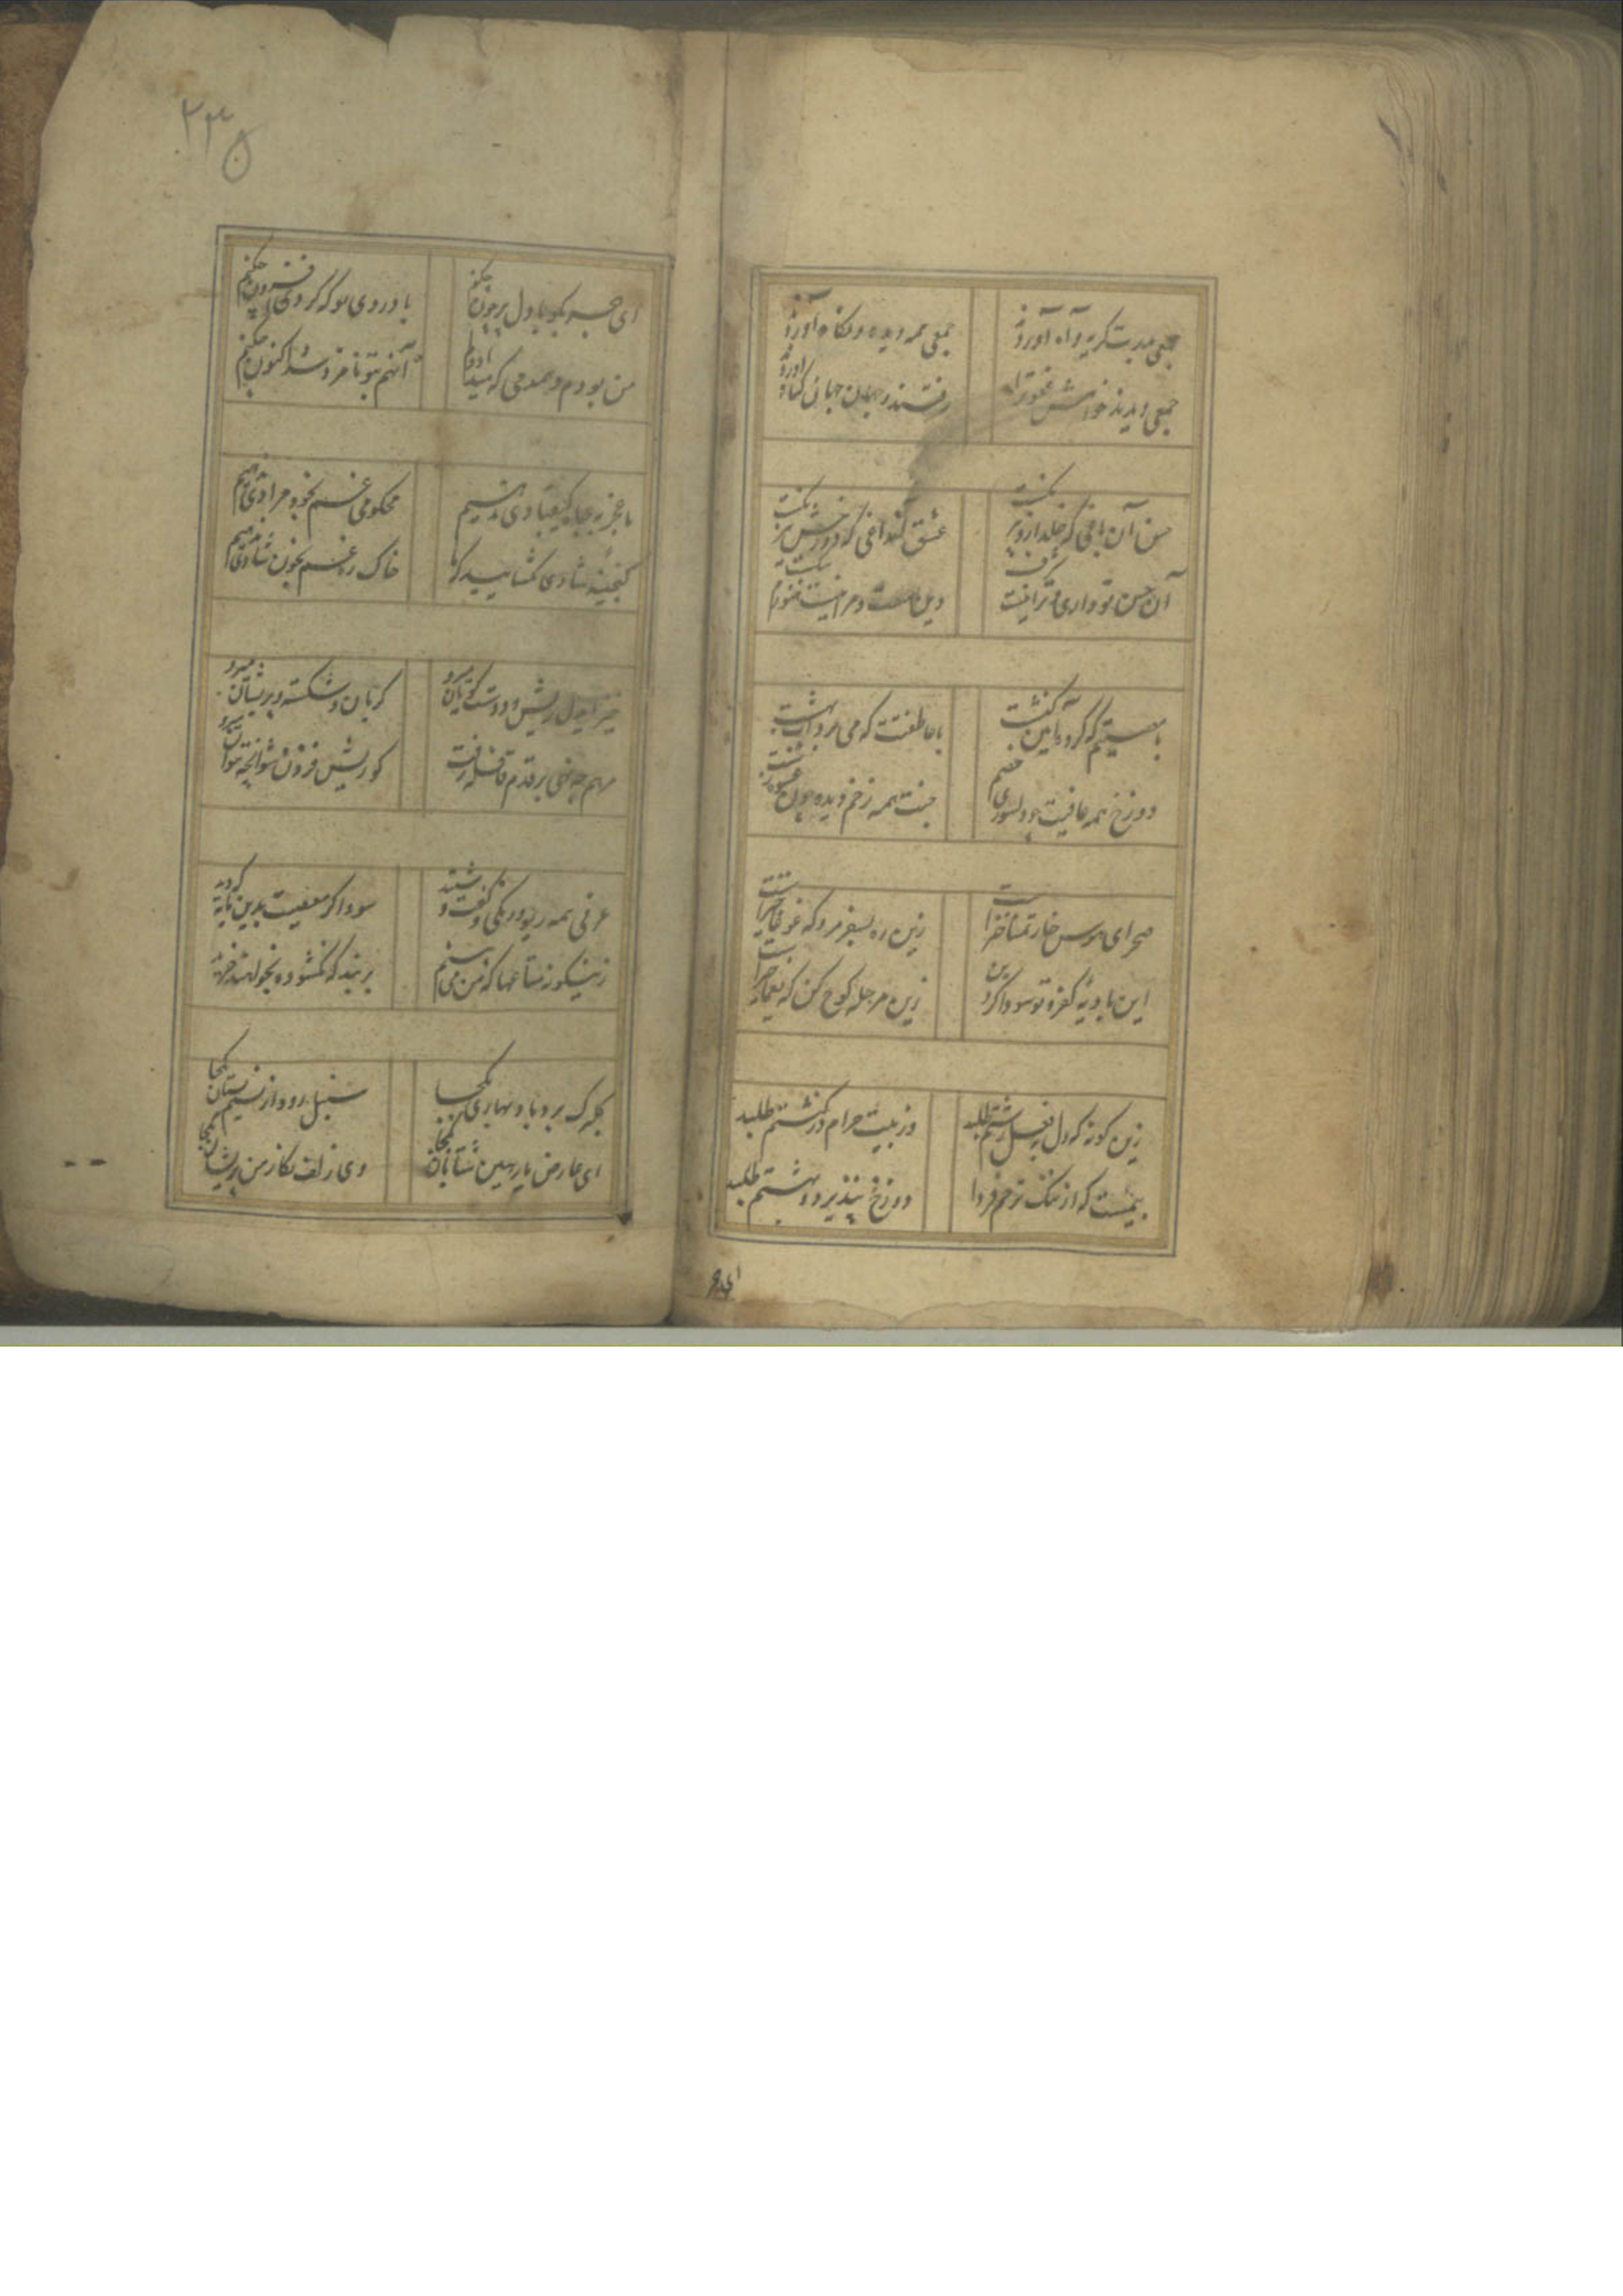 جمعی بدرت گریه و آه آورند
جمعی همه دیده و نگاه آورند
جمعی دیدند خواهش عفو ترا
رفتند و جهان جهان گناه آوردند
حسن آن باغی که خلد ازو بر
عشق آنداغی که دوزخش
آن حسن تو داری و ترا نیست
وین عشق مراست و مرا نیست
با معصیتم که کرد آیین کنشت
با عاطفتت که می برد آب بهشت
دوزخ همه عافیت چو دلسوزی خصم
جنت همه زخم دیده چون
صحرای هوس خار تمنا خیز است
زین ره بسفر مرو که غوغا خیز است
این بادیه کفر
زین مرحله کوچ کن که یغما خیز است
زین گونه که دل به فعل زشتم طلبد
وز بیت حرام در کنشتم طلبد
بیمست که از ننگ ترحم فردا
دوزخ نپذیرد و بهشتم طلبد
ای هجر
۲۳۵
ای هجر بگو با دل پر خون چکنم
با دردی که کردی افزون چکنم
من بودم و همدمی که میداد
آنهم بتو نامزد شد اکنون چکنم
ما عجز به جاه کیقبادی ندهیم
محکومی غم بخود مرادی ندهیم
گنجینه شادی بگشایید که ما
خاک ره غم بخون شادی ندهیم
خیز ایدل ریش و دوست گویان میرو
گریان و شکسته و پریشان میرو
مرهم چه نهی بر قدم قافله رفت
گو ریش فزون شو آنچه بتوان میرو
عرفی همه ریو و رنگی و گفت و شنید
سوداگر معصیت بدین مایه که دید
زینگونه متاعها که من می بینم
بربند که نگشوده نخواهند خرید
گلبرگ برد باد بهاری بکجا
سنبل رود از نسیم بستان بکجا
ای عارض یار هین شتابان بکجا
وی زلف نگار من پریشان بکجا